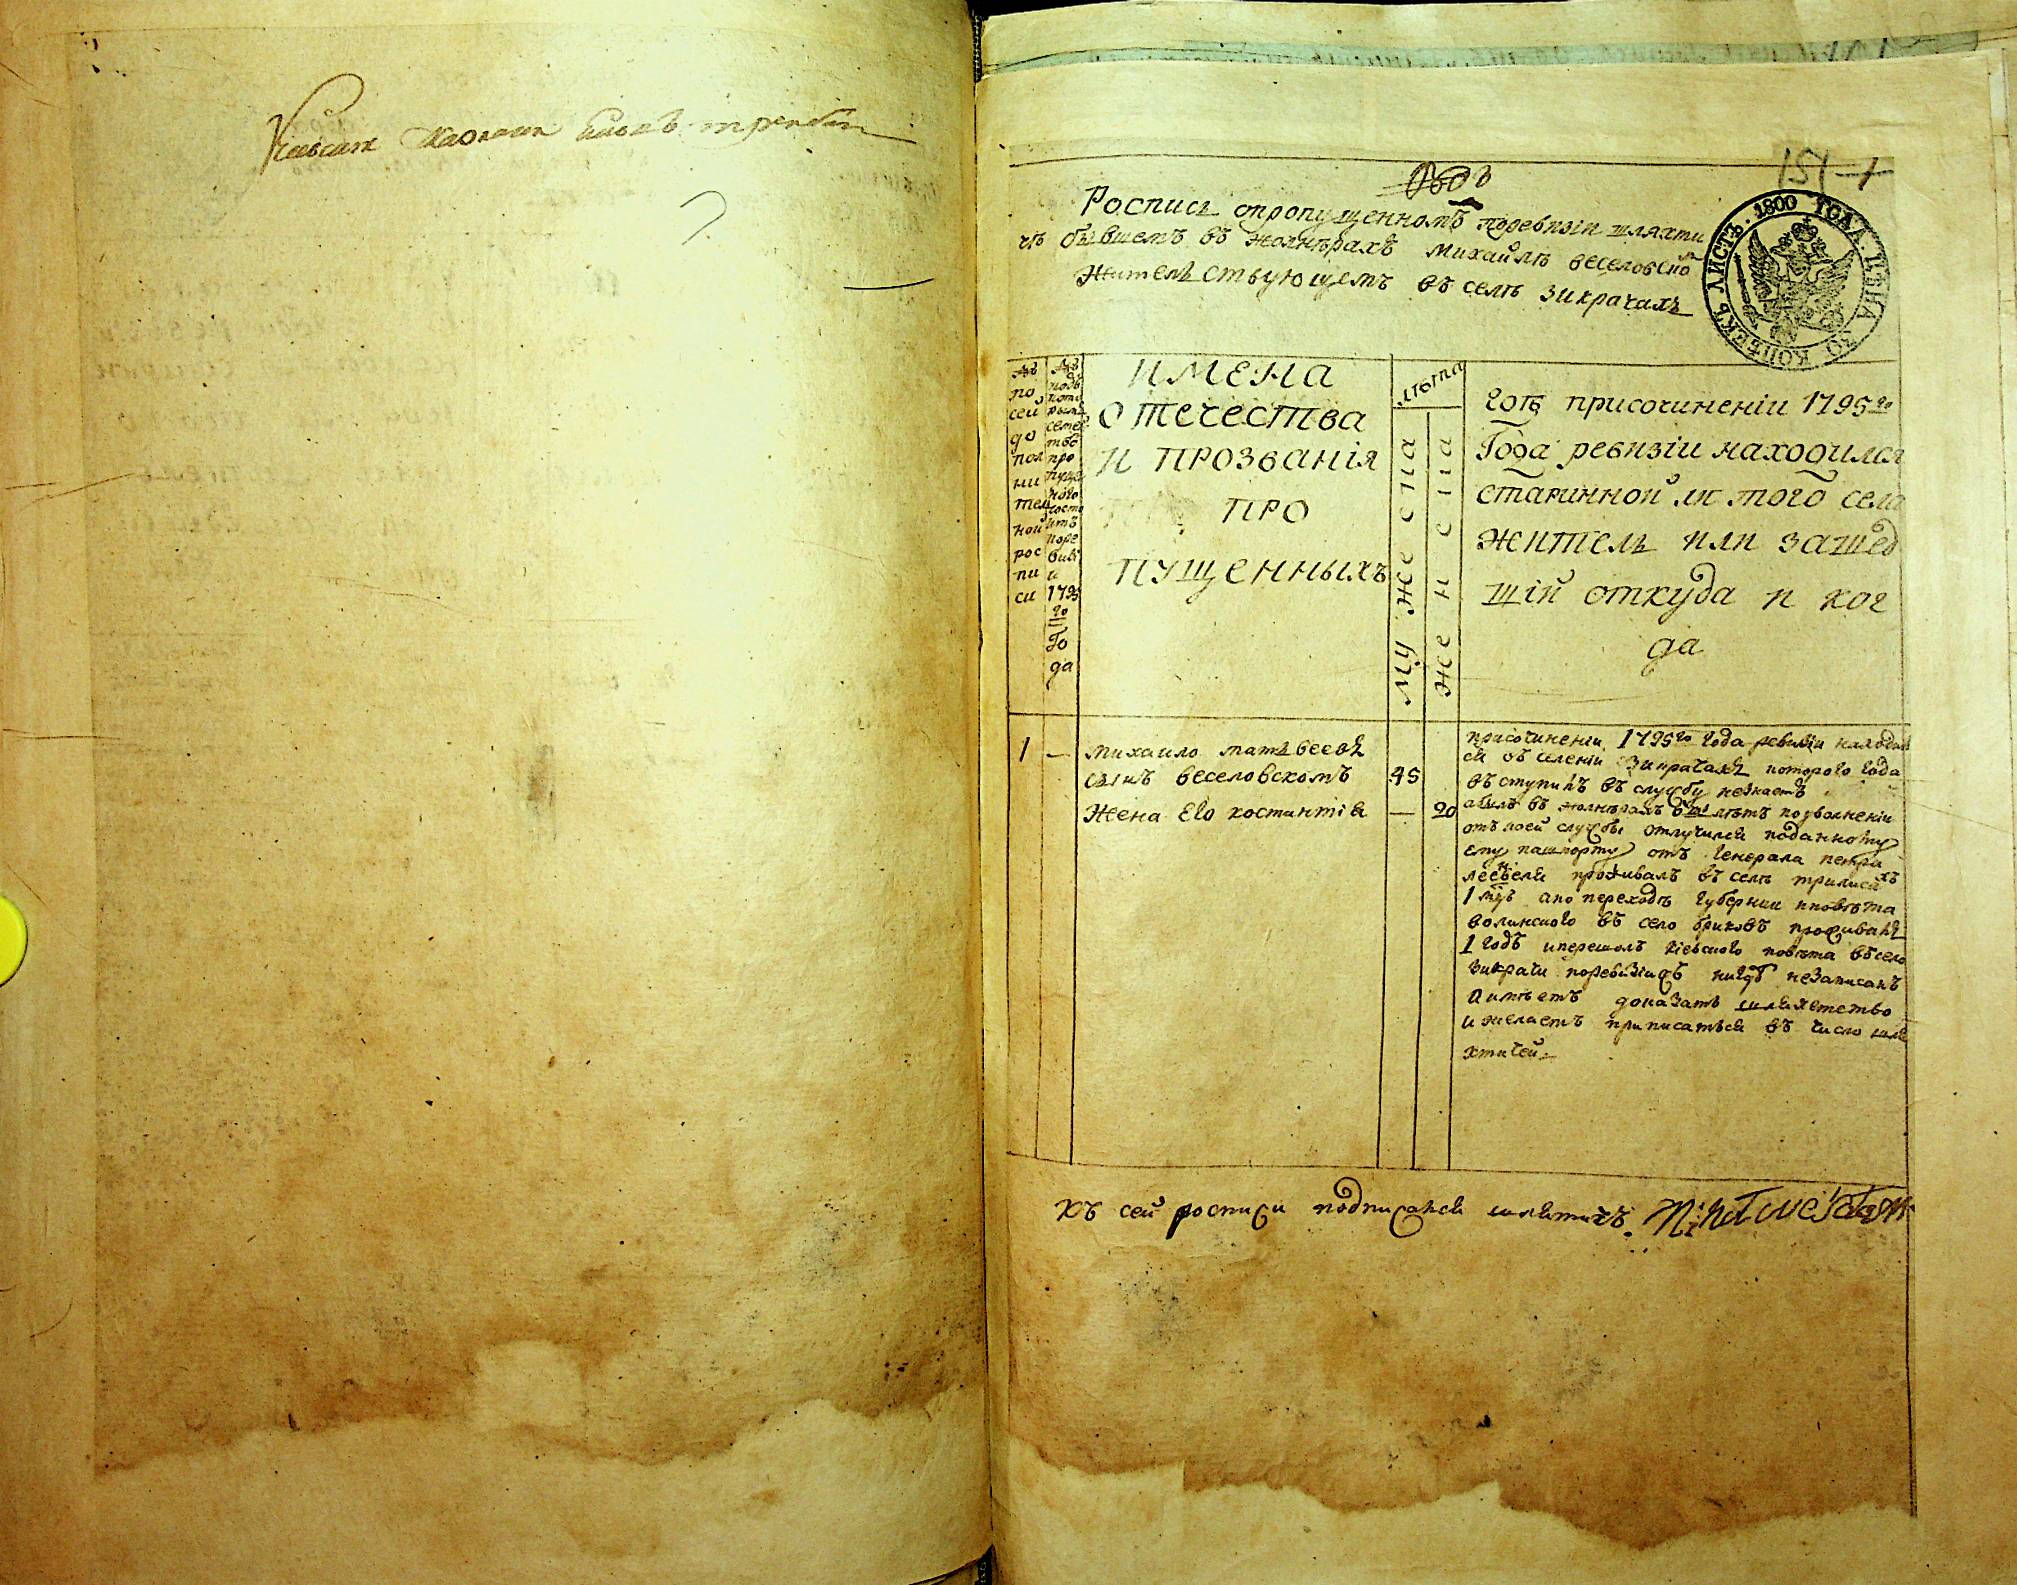 151
Роспись опропущенномъ поревизіи шляхти
чѣ бывшемъ въ жолнѣрахъ михайлѣ веселовско
жительствующемъ въ селѣ зикрачахъ
ЛИСТЪ. 1800 ГОДА. ЦѢНА 30 КОПѢЕКЪ
№ по сей до пол ни тел ной рос пи си
1795 го Го да
ИМЕНА
ОТЕЧЕСТВА
И ПРОЗВАНІЯ
ПРО
ПУЩЕННЫХЪ
лѣта
мужеска
женска
присочиненіи 1795го
Года ревизіи находился
старинной ли того села
житель или зашед
шій откуда и ког
да
1 — михаило матвеевъ
сынъ веселовскомъ 45
жена его костантія — 20
присочиненіи 1795го года ревизіи находил
ся въ селеніи зикрачахъ которого года
вступилъ въ службу незнаетъ
абылъ въ жолнѣрахъ лѣтъ поуволненіи
отъ оей службы отлучился поданному
ему пашпорту отъ генерала петра
проживалъ въ селѣ трилиса хъ
1 апо переходѣ губерніи повѣта
волинского въ село бриковъ проживалъ
1 годъ иперешолъ кіевского повѣта въсело
зикрачи поревизіи нигдѣ незаписанъ
аимѣетъ доказать шляхетство
ижелаетъ приписаться въ число шля
хтичей
къ сей росписи подписался шляхтичъ